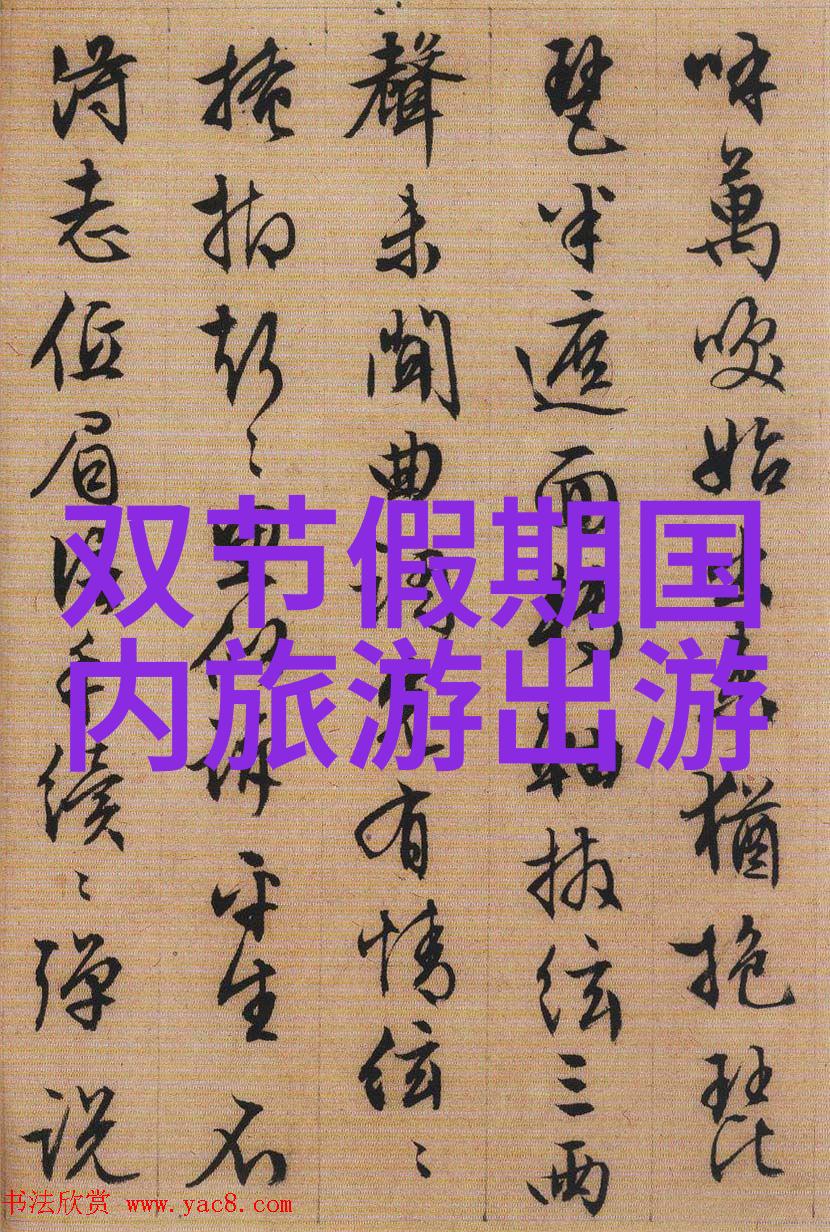 呼萬喚始出来猶抱琵
琶半遮面轉軸撥絃三兩
聲未聞曲調先有情絃〻
掩抑聲〻思似訴平生不
得志低眉信手續〻彈說
双节假期国
内旅游出游
书法欣赏 www.yac8.com